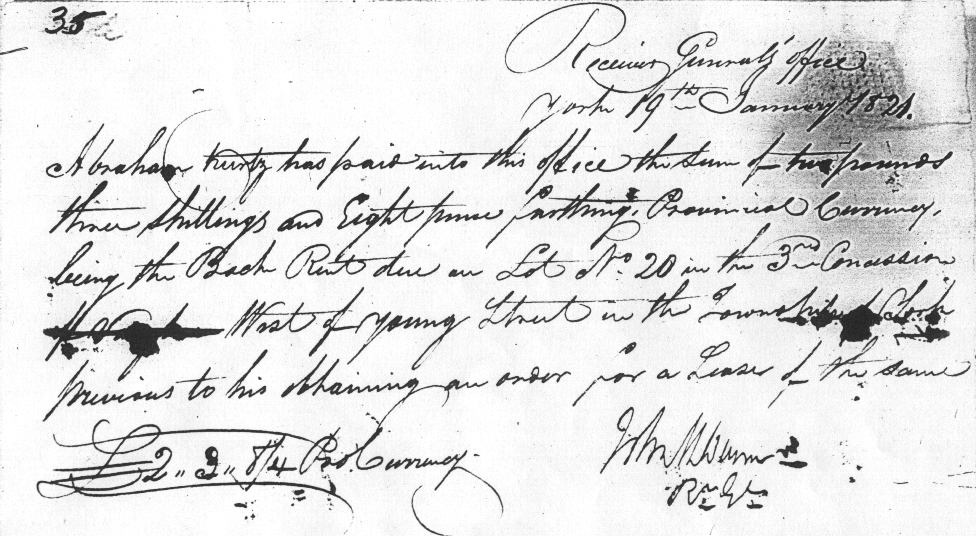 35
Receiver Generals' office
York 19th January 1821.
Abraham Kurtz has paid into this office the Sum of two pounds
three Shillings and Eight pence farthing, Provincial Currency,
being the Back Rent due on Lot No. 20 in the 3rd Concession
West of Young Street in the Township of York
previous to his obtaining an order for a Lease of the same
£2„ 3„ 8/4 Pro Currency.
John
Rr Gl